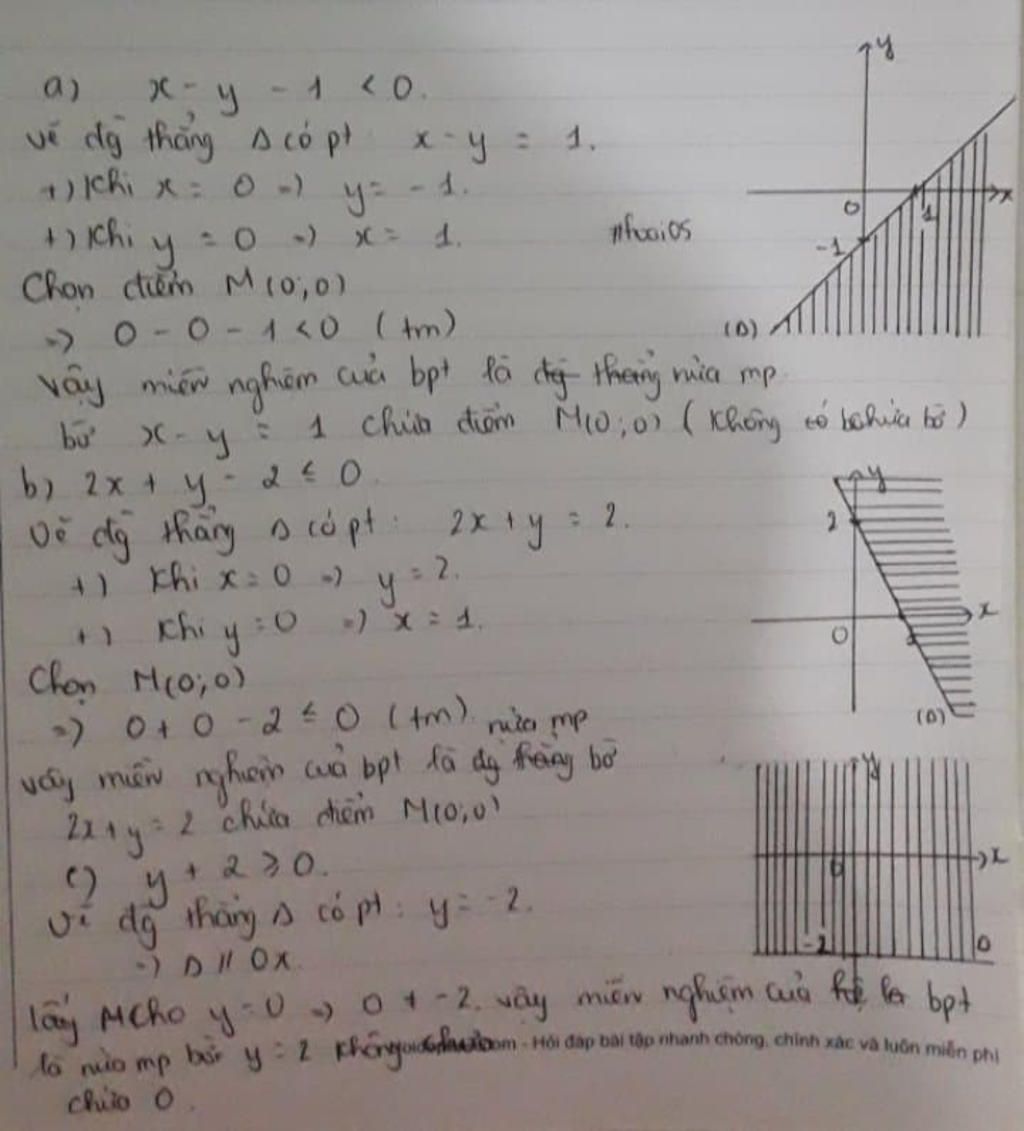 a) x - y - 1 < 0.
Vẽ đg thẳng Δ có pt x - y = 1.
+) Khi x = 0 => y = -1.
+) Khi y = 0 => x = 1.
#fooi05
Chọn điểm M(0;0)
=> 0 - 0 - 1 < 0 (tm)
vậy miền nghiệm của bpt là đg thẳng nửa mp
bờ x - y = 1 chứa điểm M(0;0) (không có bờ)
b) 2x + y - 2 ≤ 0.
Vẽ đg thẳng Δ có pt: 2x + y = 2.
+) Khi x = 0 => y = 2.
+) Khi y = 0 => x = 1.
Chọn M(0;0)
=> 0 + 0 - 2 ≤ 0 (tm). nửa mp
vậy miền nghiệm của bpt là đg thẳng bờ
2x + y = 2 chứa điểm M(0;0)
c) y + 2 ≥ 0.
Vẽ đg thẳng Δ có pt: y = -2.
=> Δ // Ox.
lấy M cho y = 0 => 0 ≠ -2. vậy miền nghiệm của bpt
là nửa mp bờ y = 2 không
- Hỏi đáp bài tập nhanh chóng, chính xác và luôn miễn phí
chứa O.
y
x
0
1
-1
(Δ)
y
2
x
0
(Δ)
y
x
0
-2